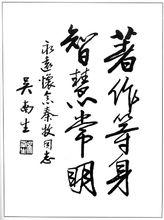 著作等身
智慧常明
永远怀念秦牧同志
吴南生